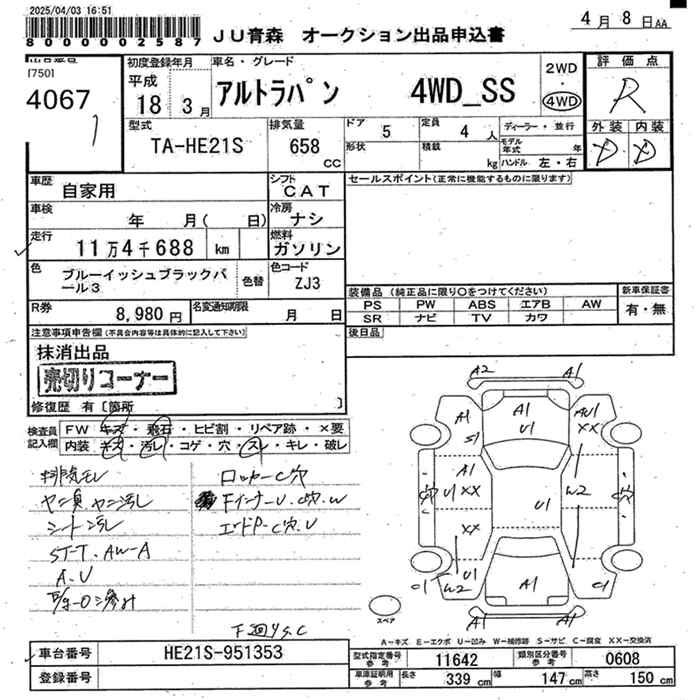 2025/04/03 16:51
8000000002587
JU青森 オークション出品申込書
4月 8日AA
[750]
4067
初度登録年月
平成
18 3月
車名・グレード
アルトラパン 4WD_SS
2WD
・
4WD
評価点
R
型式
TA-HE21S
排気量
658
CC
ドア
5
定員
4人
形状
積載
kg
ディーラー・並行
モデル年式 年
ハンドル 左・右
外装 内装
D D
車歴
自家用
シフト
CAT
セールスポイント(正常に機能するものに限ります)
車検
年 月( 日)
冷房
ナシ
走行
11万4千688 km
燃料
ガソリン
色
ブルーイッシュブラックパール3
色替
色コード
ZJ3
装備品(純正品に限り○をつけてください)
新車保証書
有・無
PS PW ABS エアB AW
SR ナビ TV カワ
R券
8,980円
名変通知期限
月 日
後日品
注意事項申告欄(不具合内容等は具体的に記入して下さい)
抹消出品
売切りコーナー
修復歴 有〔箇所 〕
検査員記入欄
FW キズ・飛石・ヒビ割・リペア跡・×要
内装 キズ・汚レ・コゲ・穴・スレ・キレ・破レ
排気モレ
ヤニ臭、ヤニ汚レ
シート汚レ
ST-T.AW-A
A.U
ロッカーC穴
Fインナー U.C穴.W
エンドP-C穴.U
A2 A1
A1 A1 AU1
S1 U1 XX
A1
U1 XX W2 C穴
XX U1
C1 W2 U1 A1 C1
A1 A1
スペア
A-キズ E-エクボ U-凹み W-補修跡 S-サビ C-腐食 XX-交換済
車台番号
HE21S-951353
登録番号
型式指定番号
参考
11642
類別区分番号
参考
0608
車庫証明用
参考
長さ 339 cm 幅 147 cm 高さ 150 cm